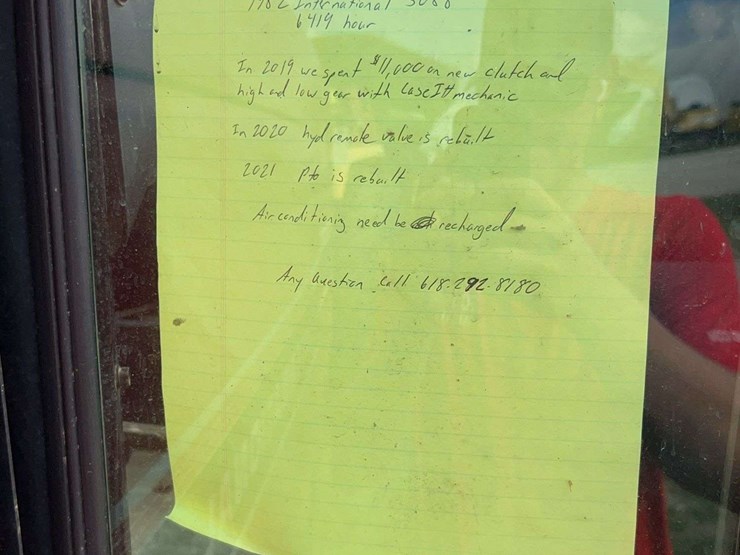 1982 International 5088
6419 hour
In 2019 we spent $11,000 on new clutch and
high and low gear with Case IH mechanic
In 2020 hyd remote valve is rebuilt
2021 Pto is rebuilt
Air conditioning need be recharged
Any Question Call 618-292-8180